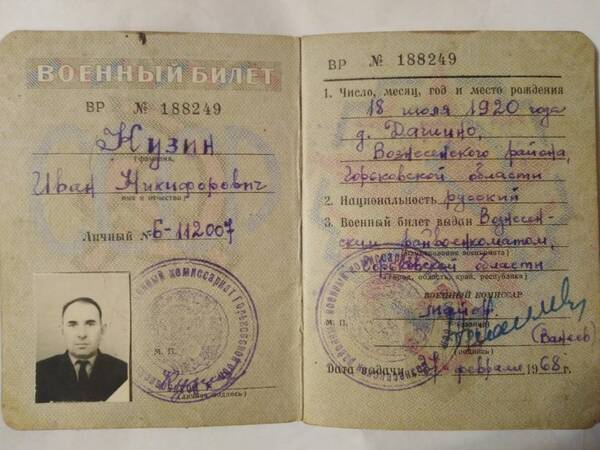 ВОЕННЫЙ БИЛЕТ
ВР № 188249
Кузин
(фамилия,
Иван Никифорович
имя и отчество)
Личный № Б-112007
М. П.
(личная подпись)
ВР № 188249
1. Число, месяц, год и место рождения
18 июля 1920 года
д.
Вознесенского района,
Горьковской области
2. Национальность русский
3. Военный билет выдан Вознесен-
ским райвоенкоматом,
(наименование военкомата)
Горьковской области
(город, область, край, республика)
ВОЕННЫЙ КОМИССАР
майор
М. П.
(подпись)
Дата выдачи 27 февраля 1968 г.